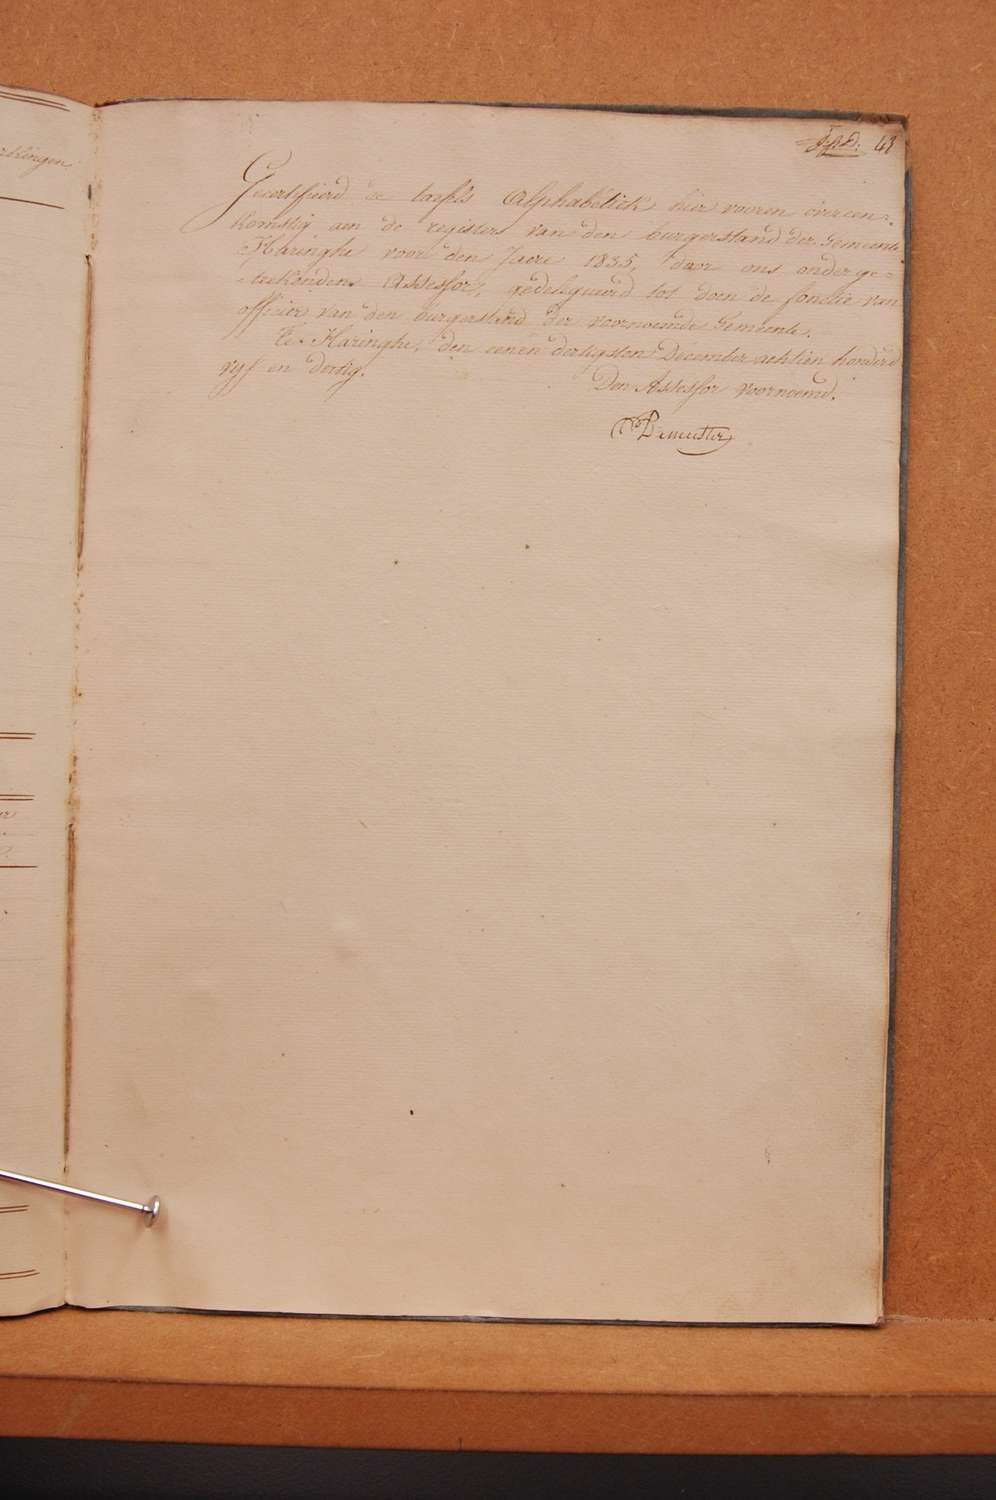 43
Gecertifierd de taefels Alphabétiek hier vooren overeen-
komstig aen de registers van den burgerstand der Gemeente
Haringhe voor den Jaere 1835, door ons onderge-
teekenden Assessor, gedelegueerd tot doen de fonctie van
officier van den burgerstand der voornoemde Gemeente.
Te Haringhe, den eenen dertigsten December achtien honderd
vyf en dertig.
Den Assessor voornoemd.
Demeester